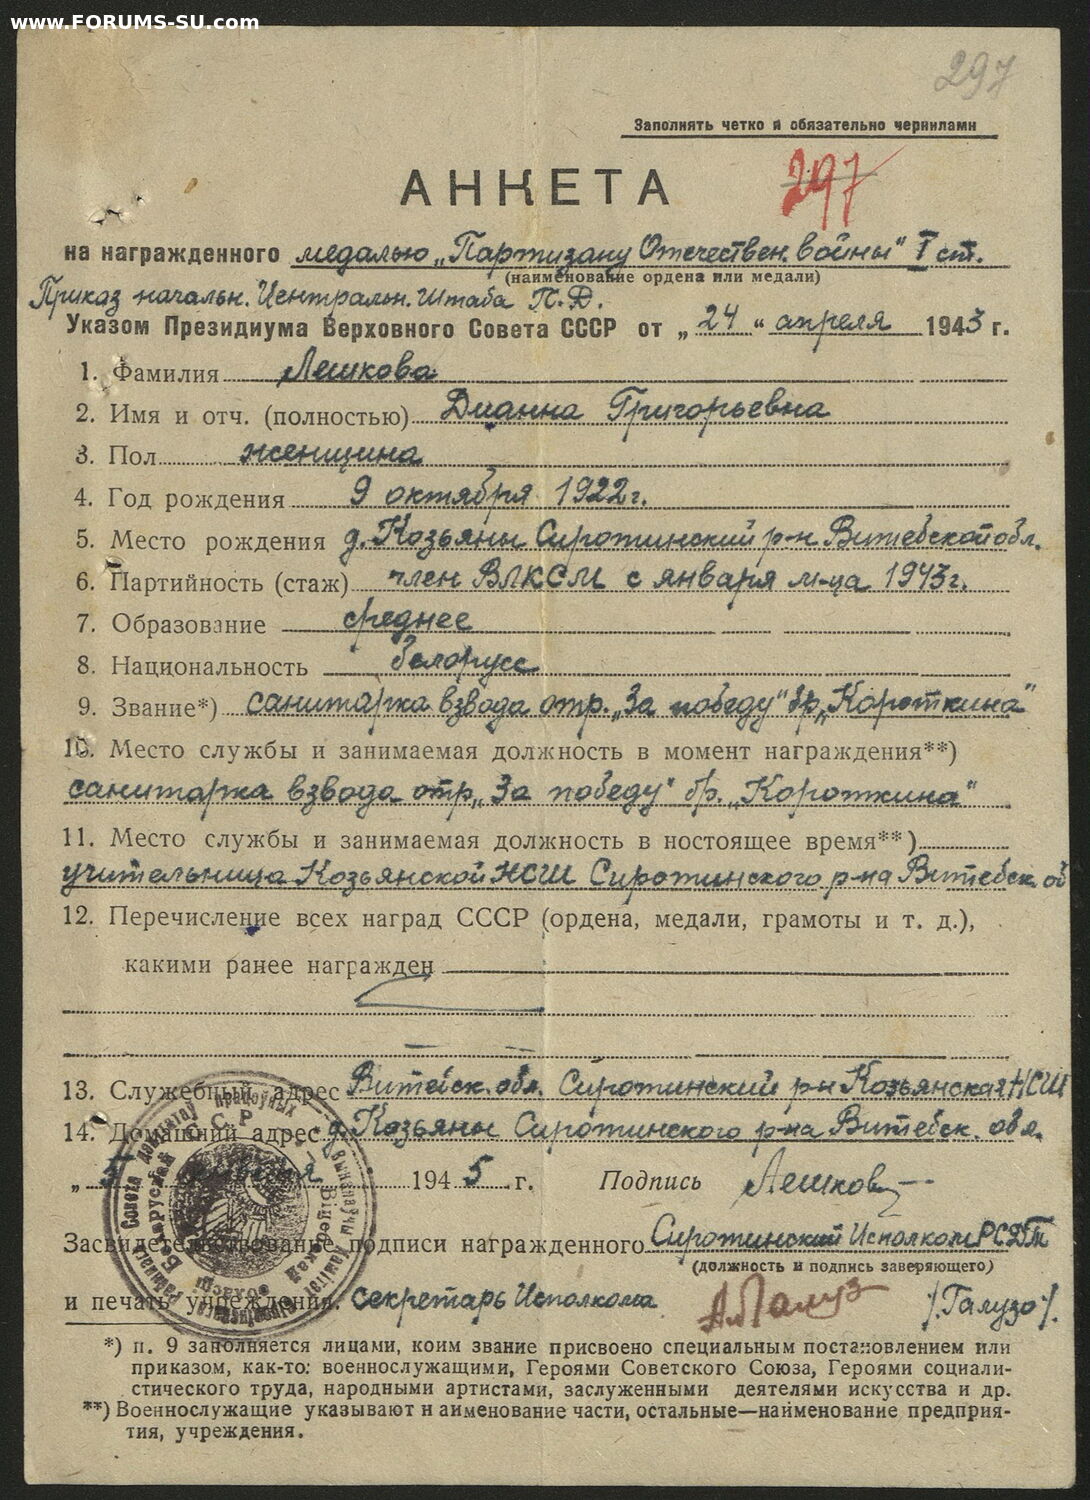 www.FORUMS-SU.com
297
Заполнять четко и обязательно чернилами
АНКЕТА
297
на награжденного медалью „Партизану Отечествен. войны" I ст.
(наименование ордена или медали)
Приказ начальн. Центральн. Штаба П.Д.
Указом Президиума Верховного Совета СССР от „24" апреля 1943 г.
1. Фамилия Лешкова
2. Имя и отч. (полностью) Дианна Григорьевна
3. Пол женщина
4. Год рождения 9 октября 1922 г.
5. Место рождения д. Козьяны Сиротинский р-н Витебской обл.
6. Партийность (стаж) член ВЛКСМ с января м-ца 1943 г.
7. Образование среднее
8. Национальность белорусс
9. Звание*) санитарка взвода отр. „За победу" бр. „Короткина"
10. Место службы и занимаемая должность в момент награждения**)
санитарка взвода отр. „За победу" бр. „Короткина"
11. Место службы и занимаемая должность в ностоящее время**)
учительница Козьянской НСШ Сиротинского р-на Витебск. об
12. Перечисление всех наград СССР (ордена, медали, грамоты и т. д.),
какими ранее награжден
13. Служебный адрес Витебск. обл. Сиротинский р-н Козьянская НСШ
14. Домашний адрес д. Козьяны Сиротинского р-на Витебск. обл.
1945 г. Подпись Лешков
Засвидетельствование подписи награжденного Сиротинский Исполком РСДТ
(должность и подпись заверяющего)
и печать учреждения. секретарь Исполкома /Галузо/.
*) п. 9 заполняется лицами, коим звание присвоено специальным постановлением или
приказом, как-то: военнослужащими, Героями Советского Союза, Героями социали-
стического труда, народными артистами, заслуженными деятелями искусства и др.
**) Военнослужащие указывают н аименование части, остальные—наименование предприя-
тия, учреждения.